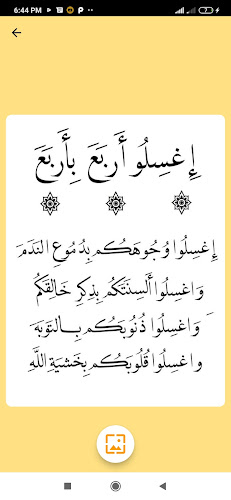 6:44 PM
إِغسِلُو أَربَعَ بِأَربَعَ
إِغسِلُوا وُجُوهَكُم بِدُمُوعِ النَدَمَ
وَاغسِلُوا أَلسِنَتَكُم بِذِكرِ خَالِقَكُم
وَاغسِلُوا ذُنُوبَكُم بِالتَوبَة
وَاغسِلُوا قُلُوبَكُم بِخَشيَةِ اللَّهِ